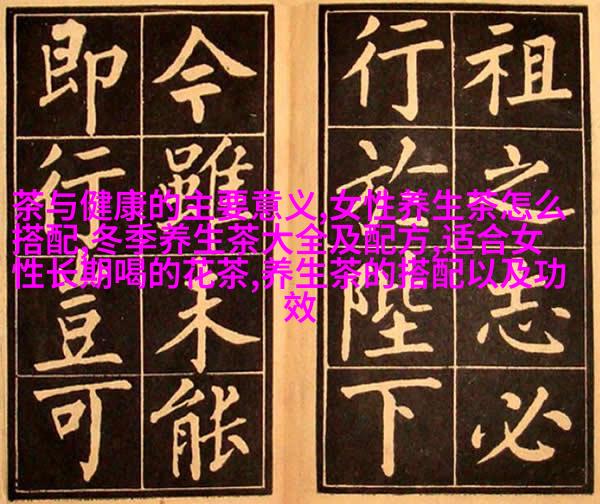 祖之志必
行於陛下
今雖未能
即行豈可
茶与健康的主要意义,女性养生茶怎么
搭配,冬季养生茶大全及配方,适合女
性长期喝的花茶,养生茶的搭配以及功
效